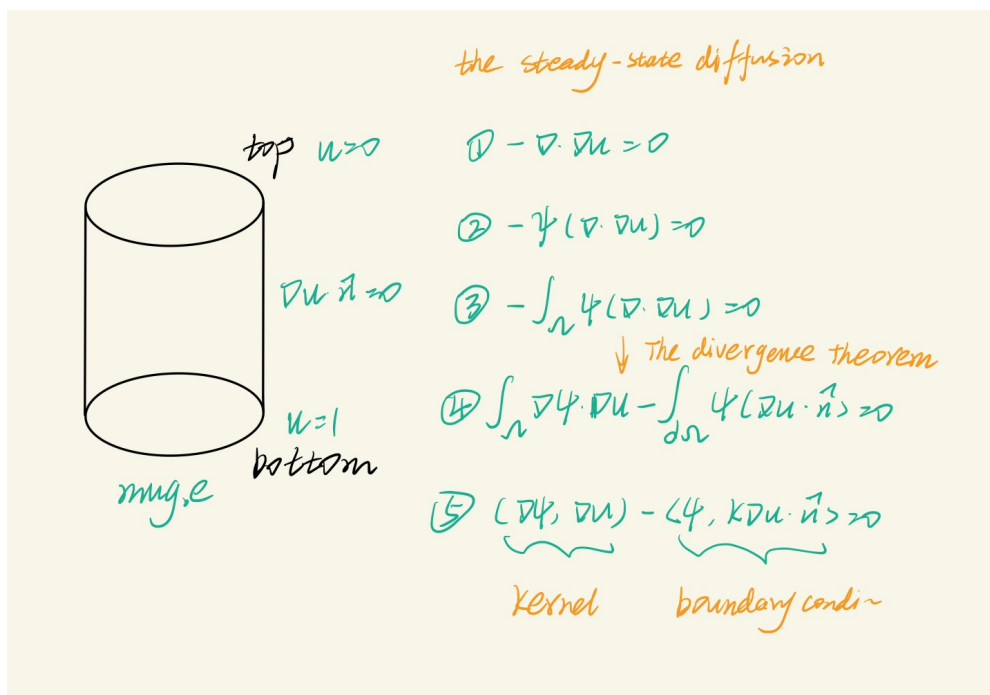 the steady-state diffusion
top u=0
∇u·n̂=0
u=1
bottom
mug.e
① -∇·∇u=0
② -ψ(∇·∇u)=0
③ -∫_Ω ψ(∇·∇u)=0
↓ The divergence theorem
④ ∫_Ω ∇ψ·∇u - ∫_∂Ω ψ(∇u·n̂)=0
⑤ (∇ψ, ∇u) - <ψ, k∇u·n̂>=0
kernel
boundary condi~